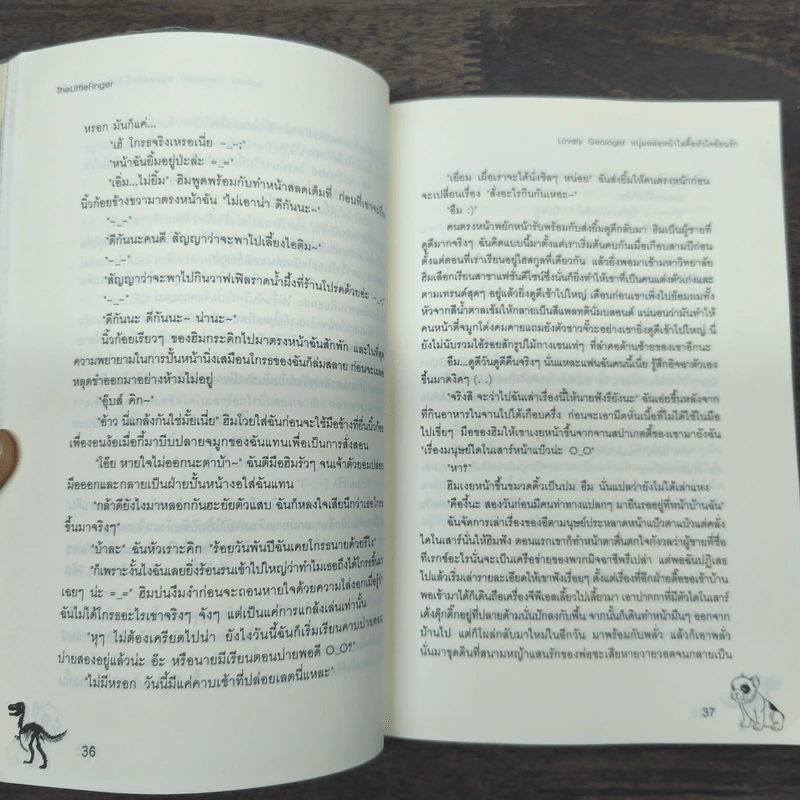 TheLittleFinger
หรอก มันก็แค่...
"เฮ้ โกรธจริงเหรอเนี่ย -_-;"
"หน้าฉันยิ้มอยู่ปะล่ะ =_="
"เอิ่ม...ไม่ยิ้ม" ฮิมพูดพร้อมกับทำหน้าสลดเต็มที่ ก่อนที่เขาจะยื่น
นิ้วก้อยข้างขวามาตรงหน้าฉัน "ไม่เอาน่า ดีกันนะ~"
"-_-"
"ดีกันนะคนดี สัญญาว่าจะพาไปเลี้ยงไอติม~"
"-_-"
"สัญญาว่าจะพาไปกินวาฟเฟิลราดน้ำผึ้งที่ร้านโปรดด้วยอ่ะ -_-"
"-_-"
"ดีกันนะ ดีกันนะ~ น่านะ~"
นิ้วก้อยเรียวๆ ของฮิมกระดิกไปมาตรงหน้าฉันสักพัก และในที่สุด
ความพยายามในการปั้นหน้านิ่งเสมือนโกรธของฉันก็ล่มสลาย ก่อนจะเผลอ
หลุดขำออกมาอย่างห้ามไม่อยู่
"อุ๊บส์ คิก~"
"อ้าว นี่แกล้งกันใช่มั้ยเนี่ย" ฮิมโวยใส่ฉันก่อนจะใช้มือข้างที่ยื่นนิ้วก้อย
เพื่องอนง้อเมื่อกี้มาบีบปลายจมูกของฉันแทนเพื่อเป็นการสั่งสอน
"โอ๊ย หายใจไม่ออกนะตาบ้า~" ฉันตีมือฮิมรัวๆ จนเจ้าตัวยอมปล่อย
มือออกและกลายเป็นฝ่ายปั้นหน้างอใส่ฉันแทน
"กล้าดียังไงมาหลอกกันฮะยัยตัวแสบ ฉันก็หลงใจเสียนึกว่าเธอโกรธ
ขึ้นมาจริงๆ"
"บ้าล่ะ" ฉันหัวเราะคิก "ร้อยวันพันปีฉันเคยโกรธนายด้วยรึไง"
"ก็เพราะงั้นไงฉันเลยยิ่งร้อนรนเข้าไปใหญ่ว่าทำไมเธอถึงได้โกรธขึ้นมา
เฉยๆ น่ะ =_=" ฮิมบ่นงึมงำก่อนจะถอนหายใจด้วยความโล่งอกเมื่อรู้ว่า
ฉันไม่ได้โกรธอะไรเขาจริงๆ จังๆ แต่เป็นแค่การแกล้งเล่นเท่านั้น
"หุๆ ไม่ต้องเครียดไปน่า ยังไงวันนี้ฉันก็เริ่มเรียนคาบบ่ายตอน
บ่ายสองอยู่แล้วน่ะ อ๊ะ หรือนายมีเรียนตอนบ่ายพอดี O_O?"
"ไม่มีหรอก วันนี้มีแค่คาบเช้าที่ปล่อยเลตนี่แหละ"
36
Lovely Geologist หนุ่มหล่อหน้าใสสื่อหัวใจอ้อนรัก
"เยี่ยม เผื่อเราจะได้นั่งชิลๆ หน่อย" ฉันส่งยิ้มให้คนตรงหน้าก่อน
จะเปลี่ยนเรื่อง "สั่งอะไรกินกันเหอะ~"
"อืม :)"
คนตรงหน้าพยักหน้ารับพร้อมกับส่งยิ้มดูดีกลับมา ฮิมเป็นผู้ชายที่
ดูดีมากจริงๆ ฉันคิดแบบนี้มาตั้งแต่เราเริ่มต้นคบกันเมื่อเกือบสามปีก่อน
ตั้งแต่ตอนที่เราเรียนอยู่ไฮสกูลที่เดียวกัน แล้วยิ่งพอมาเข้ามหาวิทยาลัย
ฮิมเลือกเรียนสาขาแฟชั่นดีไซน์ซึ่งนั่นก็ยิ่งทำให้เขาที่เป็นคนแต่งตัวเก่งและ
ตามเทรนด์สุดๆ อยู่แล้วยิ่งดูดีเข้าไปใหญ่ เดือนก่อนเขาเพิ่งไปย้อมผมทั้ง
หัวจากสีน้ำตาลเข้มให้กลายเป็นสีแพลทตินั่มบลอนด์ แน่นอนว่ามันทำให้
คนหน้าตี๋จมูกโด่งคมคายแถมยังตัวขาวจั๊วะอย่างเขายิ่งดูดีเข้าไปใหญ่ นี่
ยังไม่นับรวมไอ้รอยสักรูปไม้กางเขนเท่ๆ ที่ลำคอด้านซ้ายของเขาอีกนะ
อืม...ดูดีวันดูดีคืนจริงๆ นั่นแหละแฟนฉันคนนี้เนี่ย รู้สึกอิจฉาตัวเอง
ขึ้นมาตงิดๆ (. .)
"จริงสิ จะว่าไปฉันเล่าเรื่องนี้ให้นายฟังรึยังนะ" ฉันเอ่ยขึ้นหลังจาก
ที่กินอาหารในจานไปได้เกือบครึ่ง ก่อนจะเอามีดหั่นเนื้อที่ไม่ได้ใช้ในมือ
ไปเขี่ยๆ มือของฮิมให้เขาเงยหน้าขึ้นจากจานสปาเกตตี้ของเขามายังฉัน
"เรื่องมนุษย์ไดโนเสาร์หน้าแบ๊วน่ะ O_O"
"หา?"
ฮิมเงยหน้าขึ้นขมวดคิ้วเป็นปม อืม นั่นแปลว่ายังไม่ได้เล่าแหง
"คืองี้นะ สองวันก่อนมีคนท่าทางแปลกๆ มายืนรออยู่ที่หน้าบ้านฉัน"
ฉันจัดการเล่าเรื่องของอีตามนุษย์ประหลาดหน้าแบ๊วตาแบ๊วแต่คลั่ง
ไดโนเสาร์นั่นให้ฮิมฟัง ตอนแรกเขาก็ทำหน้าตาตื่นตกใจกังวลว่าผู้ชายที่ชื่อ
ที่เรกซ์อะไรนั่นจะเป็นเครือข่ายของพวกมิจฉาชีพรึเปล่า แต่พอฉันปฏิเสธ
ไปแล้วเริ่มเล่ารายละเอียดให้เขาฟังเรื่อยๆ ตั้งแต่เรื่องที่อีกฝ่ายดื้อขอเข้าบ้าน
พอเข้ามาได้ก็เดินถือเครื่องจีพีเอสเลี้ยวไปเลี้ยวมา เอาปากกาที่มีตัวไดโนเสาร์
เด้งดุ๊กดิ๊กอยู่ที่ปลายด้ามนั่นปักลงกับพื้น จากนั้นก็เดินทำหน้ามึนๆ ออกจาก
บ้านไป แต่ก็โผล่กลับมาใหม่ในอีกวัน มาพร้อมกับพลั่ว แล้วก็เอาพลั่ว
นั่นมาขุดดินที่สนามหญ้าแสนรักของพ่อซะเสียหายวายวอดจนกลายเป็น
37